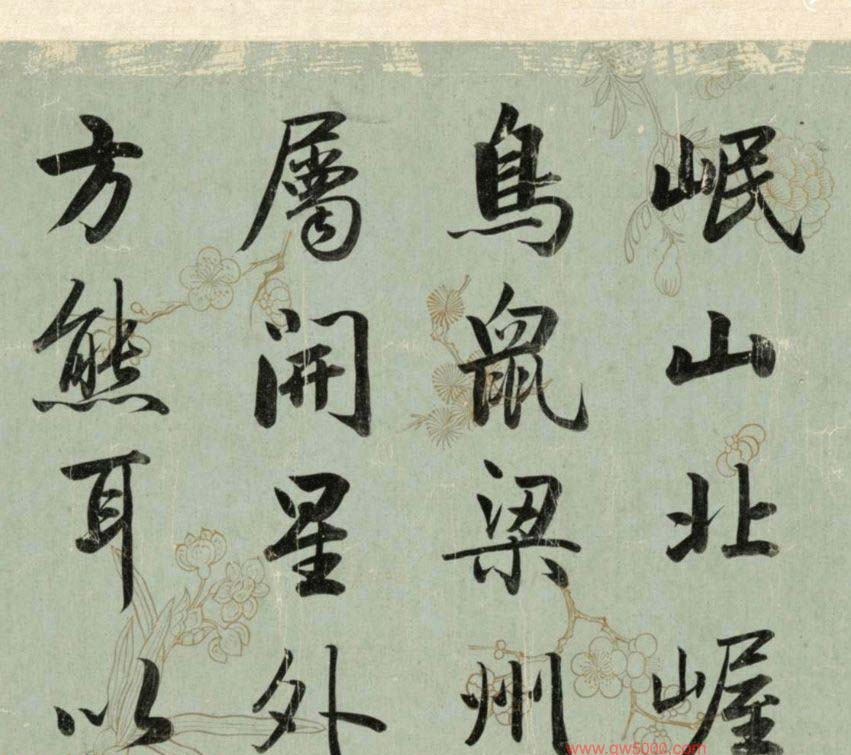 岷山北崛
鳥鼠梁州
屬開星外
方熊耳以
www.gw5000.com